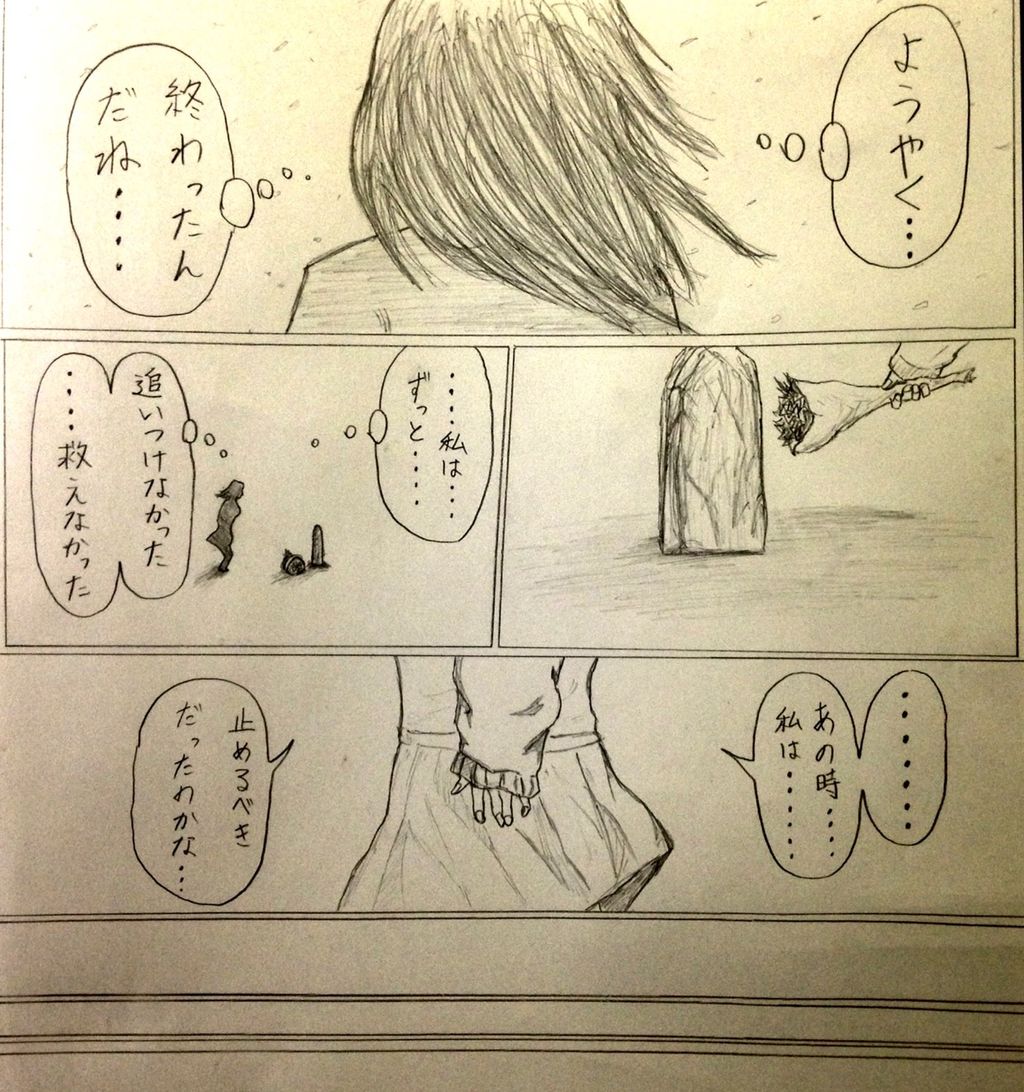 ようやく…
終わったん
だね‥‥
‥‥私は‥‥
ずっと‥‥‥
追いつけなかった
‥‥救えなかった
‥‥‥‥
あの時‥‥
私は‥‥‥
止めるべき
だったわかな…